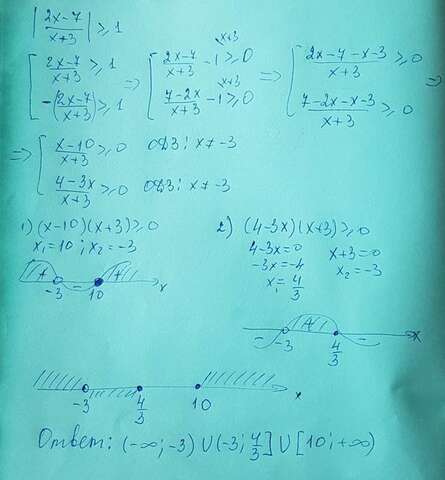 |2x-7/x+3| ≥ 1
[2x-7/x+3 ≥ 1 => [2x-7/x+3 - 1^x+3 ≥ 0 => [2x-7-x-3/x+3 ≥ 0 =>
-(2x-7/x+3) ≥ 1 7-2x/x+3 - 1^x+3 ≥ 0 7-2x-x-3/x+3 ≥ 0
=> [x-10/x+3 ≥ 0 ОДЗ: x≠-3
4-3x/x+3 ≥ 0 ОДЗ: x≠-3
1) (x-10)(x+3) ≥ 0
x₁=10; x₂=-3
+ - +
-3 10 x
2) (4-3x)(x+3) ≥ 0
4-3x=0 x+3=0
-3x=-4 x₂=-3
x₁=4/3
- + -
-3 4/3 x
-3 4/3 10 x
Ответ: (-∞; -3) ∪ (-3; 4/3] ∪ [10; +∞)